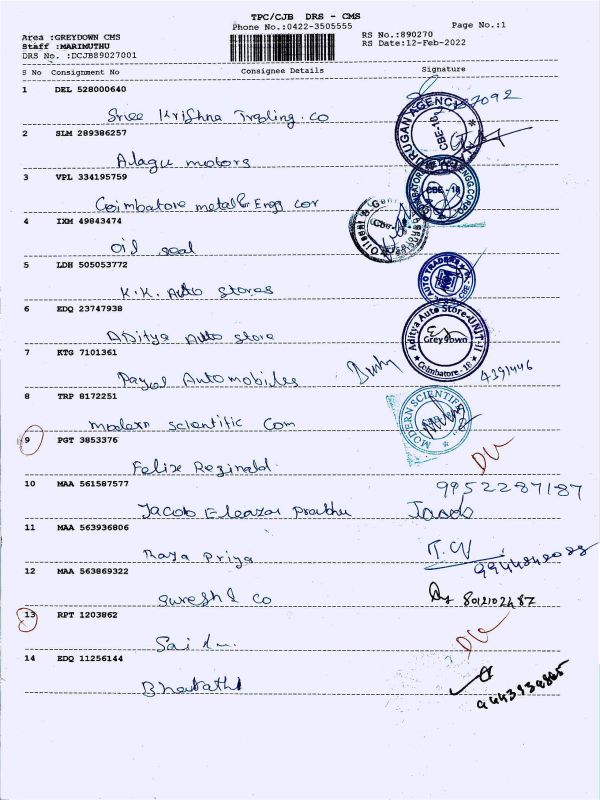 TPC/CJB DRS - CMS
Phone No.:0422-3505555
Page No.:1
Area :GREYDOWN CMS
Staff :MARIMUTHU
DRS No. :DCJB89027001
RS No.:890270
RS Date:12-Feb-2022
S No Consignment No Consignee Details Signature
1 DEL 528000640
Sree Krishna Trading.co
2 SLM 289386257
Alagu motors
3 VPL 334195759
Coimbatore metal & Engg cor
4 IXM 49843474
oil seal
5 LDH 505053772
K.K. Auto stores
AUTO TRADERS
6 EDQ 23747938
Aditya Auto store
Aditya Auto Store-UNIT-II
Greydown
Coimbatore - 18
7 KTG 7101361
Payal Automobiles
8 TRP 8172251
modern scientific Com
MODERN SCIENTIFIC
9 PGT 3853376
Felix Reginald
10 MAA 561587577
9952287187
Jacob Eleazar Prabhu Jacob
11 MAA 563936806
Raya Priya
12 MAA 563869322
suresh & co
13 RPT 1203862
Sai
14 EDQ 11256144
Bharathi